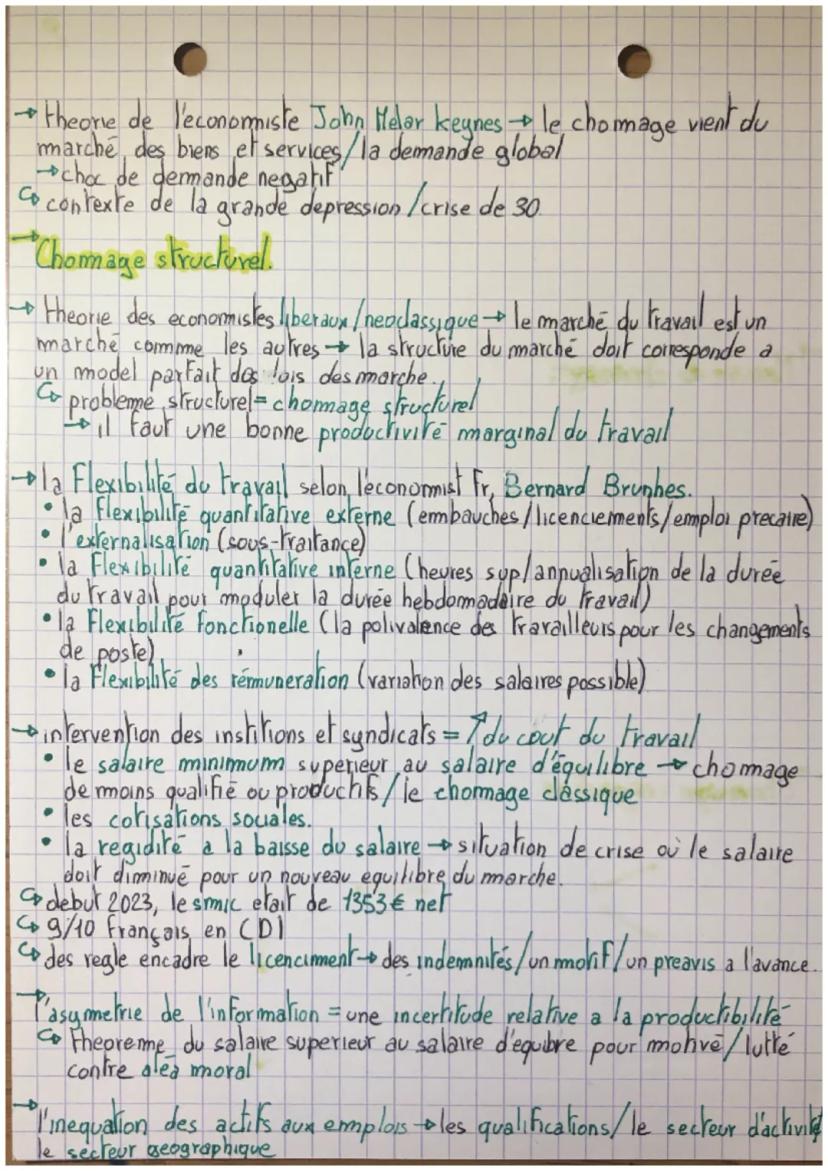 → theorie de l'economiste John Melar keynes → le chomage vient du
marché des biens et services/la demande global
→ choc de demande negatif
↳ contexte de la grande depression/crise de 30
→ Chomage structurel.
→ theorie des economistes liberaux/neoclassique → le marché du travail est un
marché comme les autres → la structure du marché doit corresponde a
un model parfait des lois des marche.
↳ probleme structurel = chomage structurel
→ il faut une bonne productivité marginal du travail
→ la Flexibilité du travail selon l'economist Fr, Bernard Brunhes.
• la flexibilité quantitative externe (embauches/licenciements/emploi precaire)
• l'externalisation (sous-traitance)
• la Flexibilité quantitative interne (heures sup/annualisation de la durée
du travail pour moduler la durée hebdomadaire du travail)
• la Flexibilité fonctionelle (la polivalence des travailleurs pour les changements
de poste)
• la Flexibilité des rémuneration (variation des salaires possible)
→ intervention des instItions et syndicats = ↗ du cout du travail
• le salaire minimum superieur au salaire d'équilibre → chomage
de moins qualifié ou productifs/le chomage classique
• les cotisations sociales.
• la regidité a la baisse du salaire → situation de crise où le salaire
doit diminué pour un nouveau equilibre du marche.
↳ debut 2023, le smic etait de 1353€ net
↳ 9/10 Français en CDI
↳ des regle encadre le licenciment → des indemnités/un motif/un preavis a l'avance.
→ l'asymetrie de l'information = une incertitude relative a la productibilité
↳ theoreme du salaire superieur au salaire d'equibre pour motivé/lutté
contre aléa moral
→ l'inequation des actifs aux emplois → les qualifications/le secteur d'activité
le secteur geographique